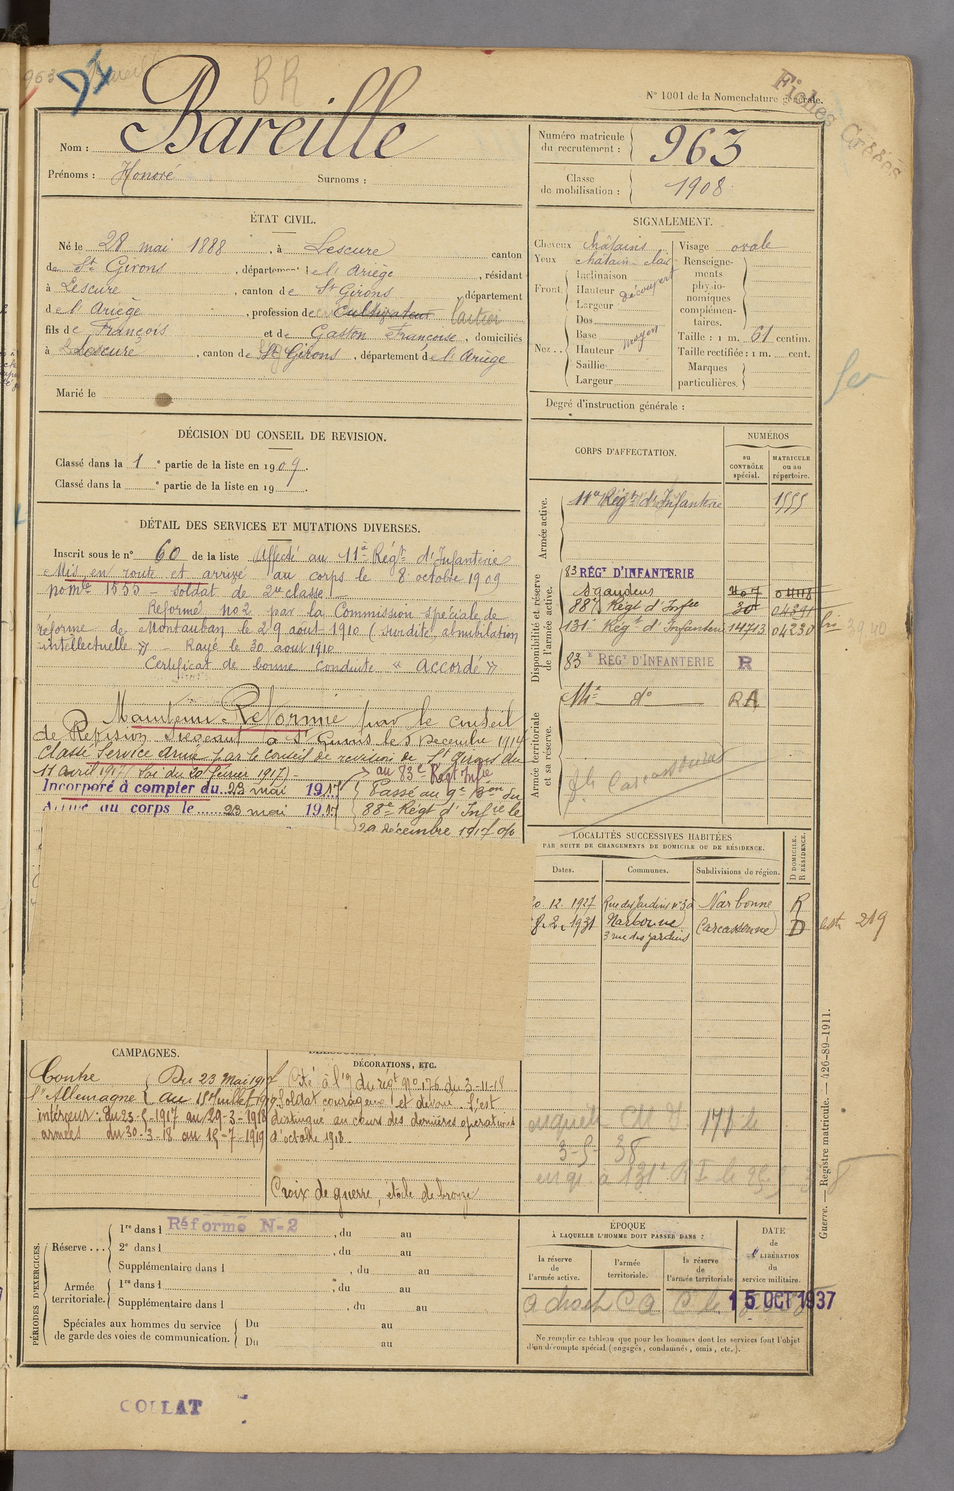 963
BR
N° 1001 de la Nomenclature générale.
Fiches Cassées
Nom : Bareille
Prénoms : Honoré Surnoms :
Numéro matricule du recrutement : 963
Classe de mobilisation : 1908
ÉTAT CIVIL.
Né le 28 mai 1888, à Lescure canton
de St Girons, département de l'Ariège, résidant
à Lescure, canton de St Girons, département
de l'Ariège, profession de Cultivateur
fils de François et de Gaston Françoise, domiciliés
à Lescure, canton de St Girons, département de l'Ariège
Marié le
SIGNALEMENT.
Cheveux châtains
Yeux châtain-clair
Front. Inclinaison
Hauteur découvert
Largeur
Nez.. Dos
Base
Hauteur moyen
Saillie
Largeur
Visage ovale
Renseignements physionomiques complémentaires.
Taille : 1 m. 61 centim.
Taille rectifiée : 1 m. cent.
Marques particulières.
Degré d'instruction générale :
DÉCISION DU CONSEIL DE REVISION.
Classé dans la 1e partie de la liste en 1909.
Classé dans la e partie de la liste en 19 .
DÉTAIL DES SERVICES ET MUTATIONS DIVERSES.
Inscrit sous le n° 60 de la liste Affecté au 11e Régt d'Infanterie
Mis en route et arrivé au corps le 8 octobre 1909
no mle 1555 - soldat de 2me classe
Réformé no 2 par la Commission spéciale de
réforme de Montauban le 29 août 1910 (surdité, obnubilation
intellectuelle » - Rayé le 30 août 1910
Certificat de bonne conduite « accordé »
Maintenu Réformé par le conseil
de Révision siégeant à St Girons le 5 Décembre 1914
Classé Service armé par le Conseil de revision de St Girons du
11 avril 1917 (Loi du 20 février 1917) -
au 83e Régt Infie
Incorporé à compter du 23 mai 1917
Arrivé au corps le 23 mai 1917
Passé au 9e Bon du
88e Régt d'Infie le
29 décembre 1917
CORPS D'AFFECTATION.
NUMÉROS
au CONTRÔLE spécial.
MATRICULE ou au répertoire.
Armée active.
11e Régt d'Infanterie 1555
Disponibilité et réserve de l'armée active.
83 RÉGt D'INFANTERIE
St gaudens 407 04118
88e Régt d'Infie 20 04241
131e Régt d'Infanterie 14713 04230
83e RÉGt D'INFANTERIE R
Armée territoriale et sa réserve.
do RA
Carcassonne
LOCALITÉS SUCCESSIVES HABITÉES
PAR SUITE DE CHANGEMENTS DE DOMICILE OU DE RÉSIDENCE.
Dates. Communes. Subdivisions de région. D DOMICILE. R RÉSIDENCE.
12.1927 Rue des Jardins Narbonne R
8.2.1931 Narbonne Carcassonne D
3 rue des jardins
219
CAMPAGNES.
Contre l'Allemagne Du 23 mai 1917
au 15 Juillet 1919
intérieur : du 23-5-1917 au 29-3-1918
armées du 30-3-18 au 15-7-1919
DÉCORATIONS, ETC.
Cité à l'O du régt No 176 du 3-11-18
Soldat courageux et dévoué. S'est
distingué au cours des dernières opérations
d'octobre 1918.
Croix de guerre, étoile de bronze
à 131e R I le
PÉRIODES D'EXERCICES.
Réserve ... 1re dans l Réformé N-2, du au
2e dans l , du au
Supplémentaire dans l , du au
Armée territoriale. 1re dans l , du au
Supplémentaire dans l , du au
Spéciales aux hommes du service de garde des voies de communication. Du au
Du au
ÉPOQUE
À LAQUELLE L'HOMME DOIT PASSER DANS :
la réserve de l'armée active.
l'armée territoriale.
la réserve de l'armée territoriale
DATE de LIBÉRATION du service militaire.
15 OCT 1937
Ne remplir ce tableau que pour les hommes dont les services font l'objet
d'un décompte spécial (engagés, condamnés, omis, etc.).
Guerre. — Registre matricule. — 426-89-1911.
COLLAT